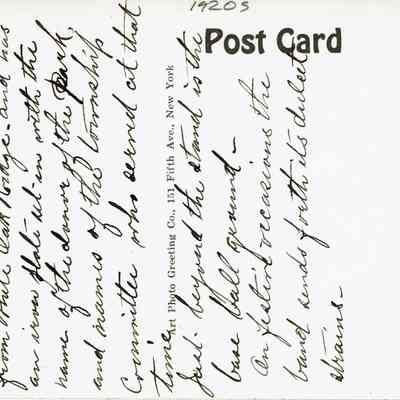 1920s
Post Card
Art Photo Greeting Co., 151 Fifth Ave., New York
from White Oak Ridge - and has
an iron plate set in with the
name of the donor of the Park,
and names of the township
Committee who served at that
time.
Just beyond the stand is the
base ball ground -
On festive occasions the
band sends forth its dulcet
strains -